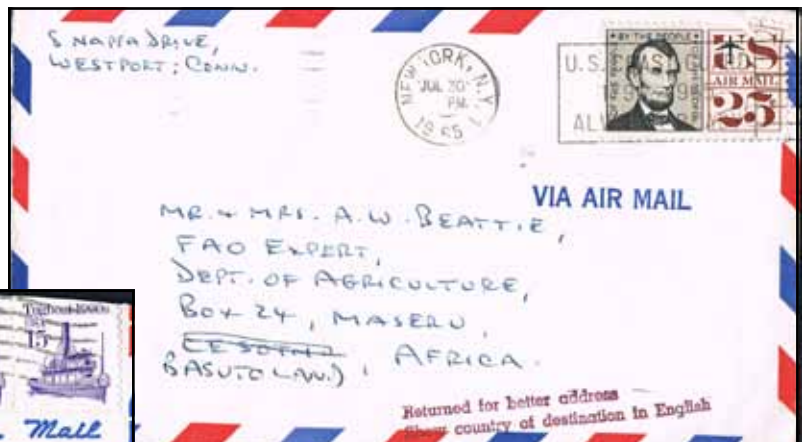 5 NAPPA DRIVE,
WESTPORT, CONN.
NEW YORK, N.Y. 1
JUL 30
PM
1965
U.S. COAST GUARD
BY THE PEOPLE
US
AIR MAIL
25
VIA AIR MAIL
MR. & MRS. A.W. BEATTIE,
FAO EXPERT,
DEPT. OF AGRICULTURE,
BOX 24, MASERU,
BASUTOLAND, AFRICA.
Returned for better address
Show country of destination in English
Tugboat 1900s
USA
15
Mail